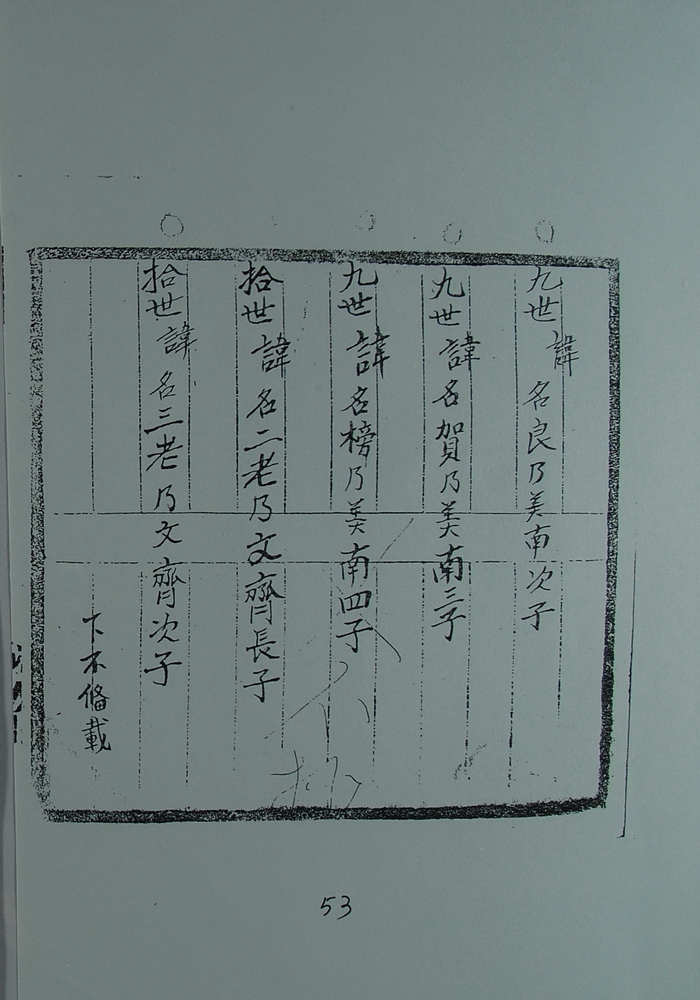 九世諱名良乃美南次子
九世諱名賀乃美南三子
九世諱名榜乃美南四子
拾世諱名二老乃文齊長子
拾世諱名三老乃文齊次子
下不俻載
53